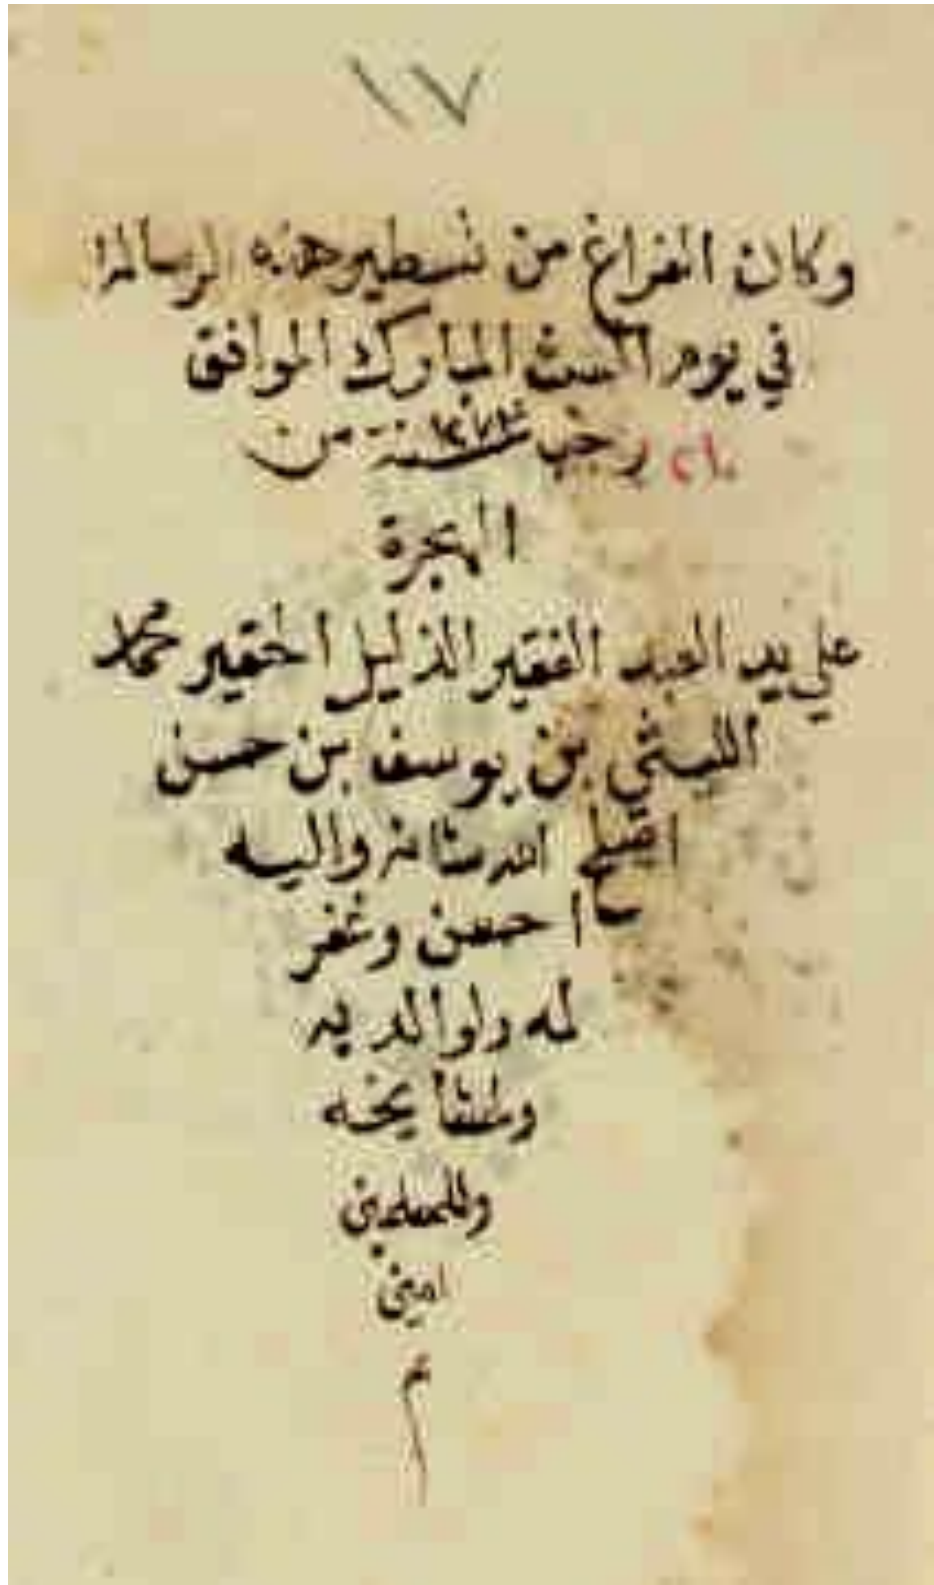 ١٧
وكان الفراغ من تسطير هذه الرسالة
في يوم السبت المبارك الموافق
رجب سنة من
الهجرة
على يد العبد الفقير الذليل الحقير محمد
الليثي بن يوسف بن حسن
اصلح الله شانه واليه
احسن وغفر
له ولوالديه
ولمشايخه
وللمسلمين
امين
م